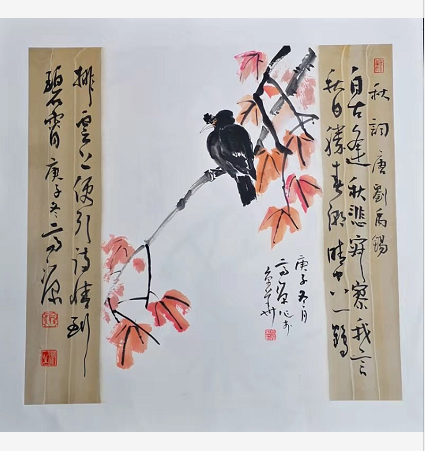 秋詞 唐劉禹錫
自古逢秋悲寂寥我言
秋日勝春朝晴空一鶴
庚子冬月
排雲上便引詩情到
碧霄 庚子冬高源